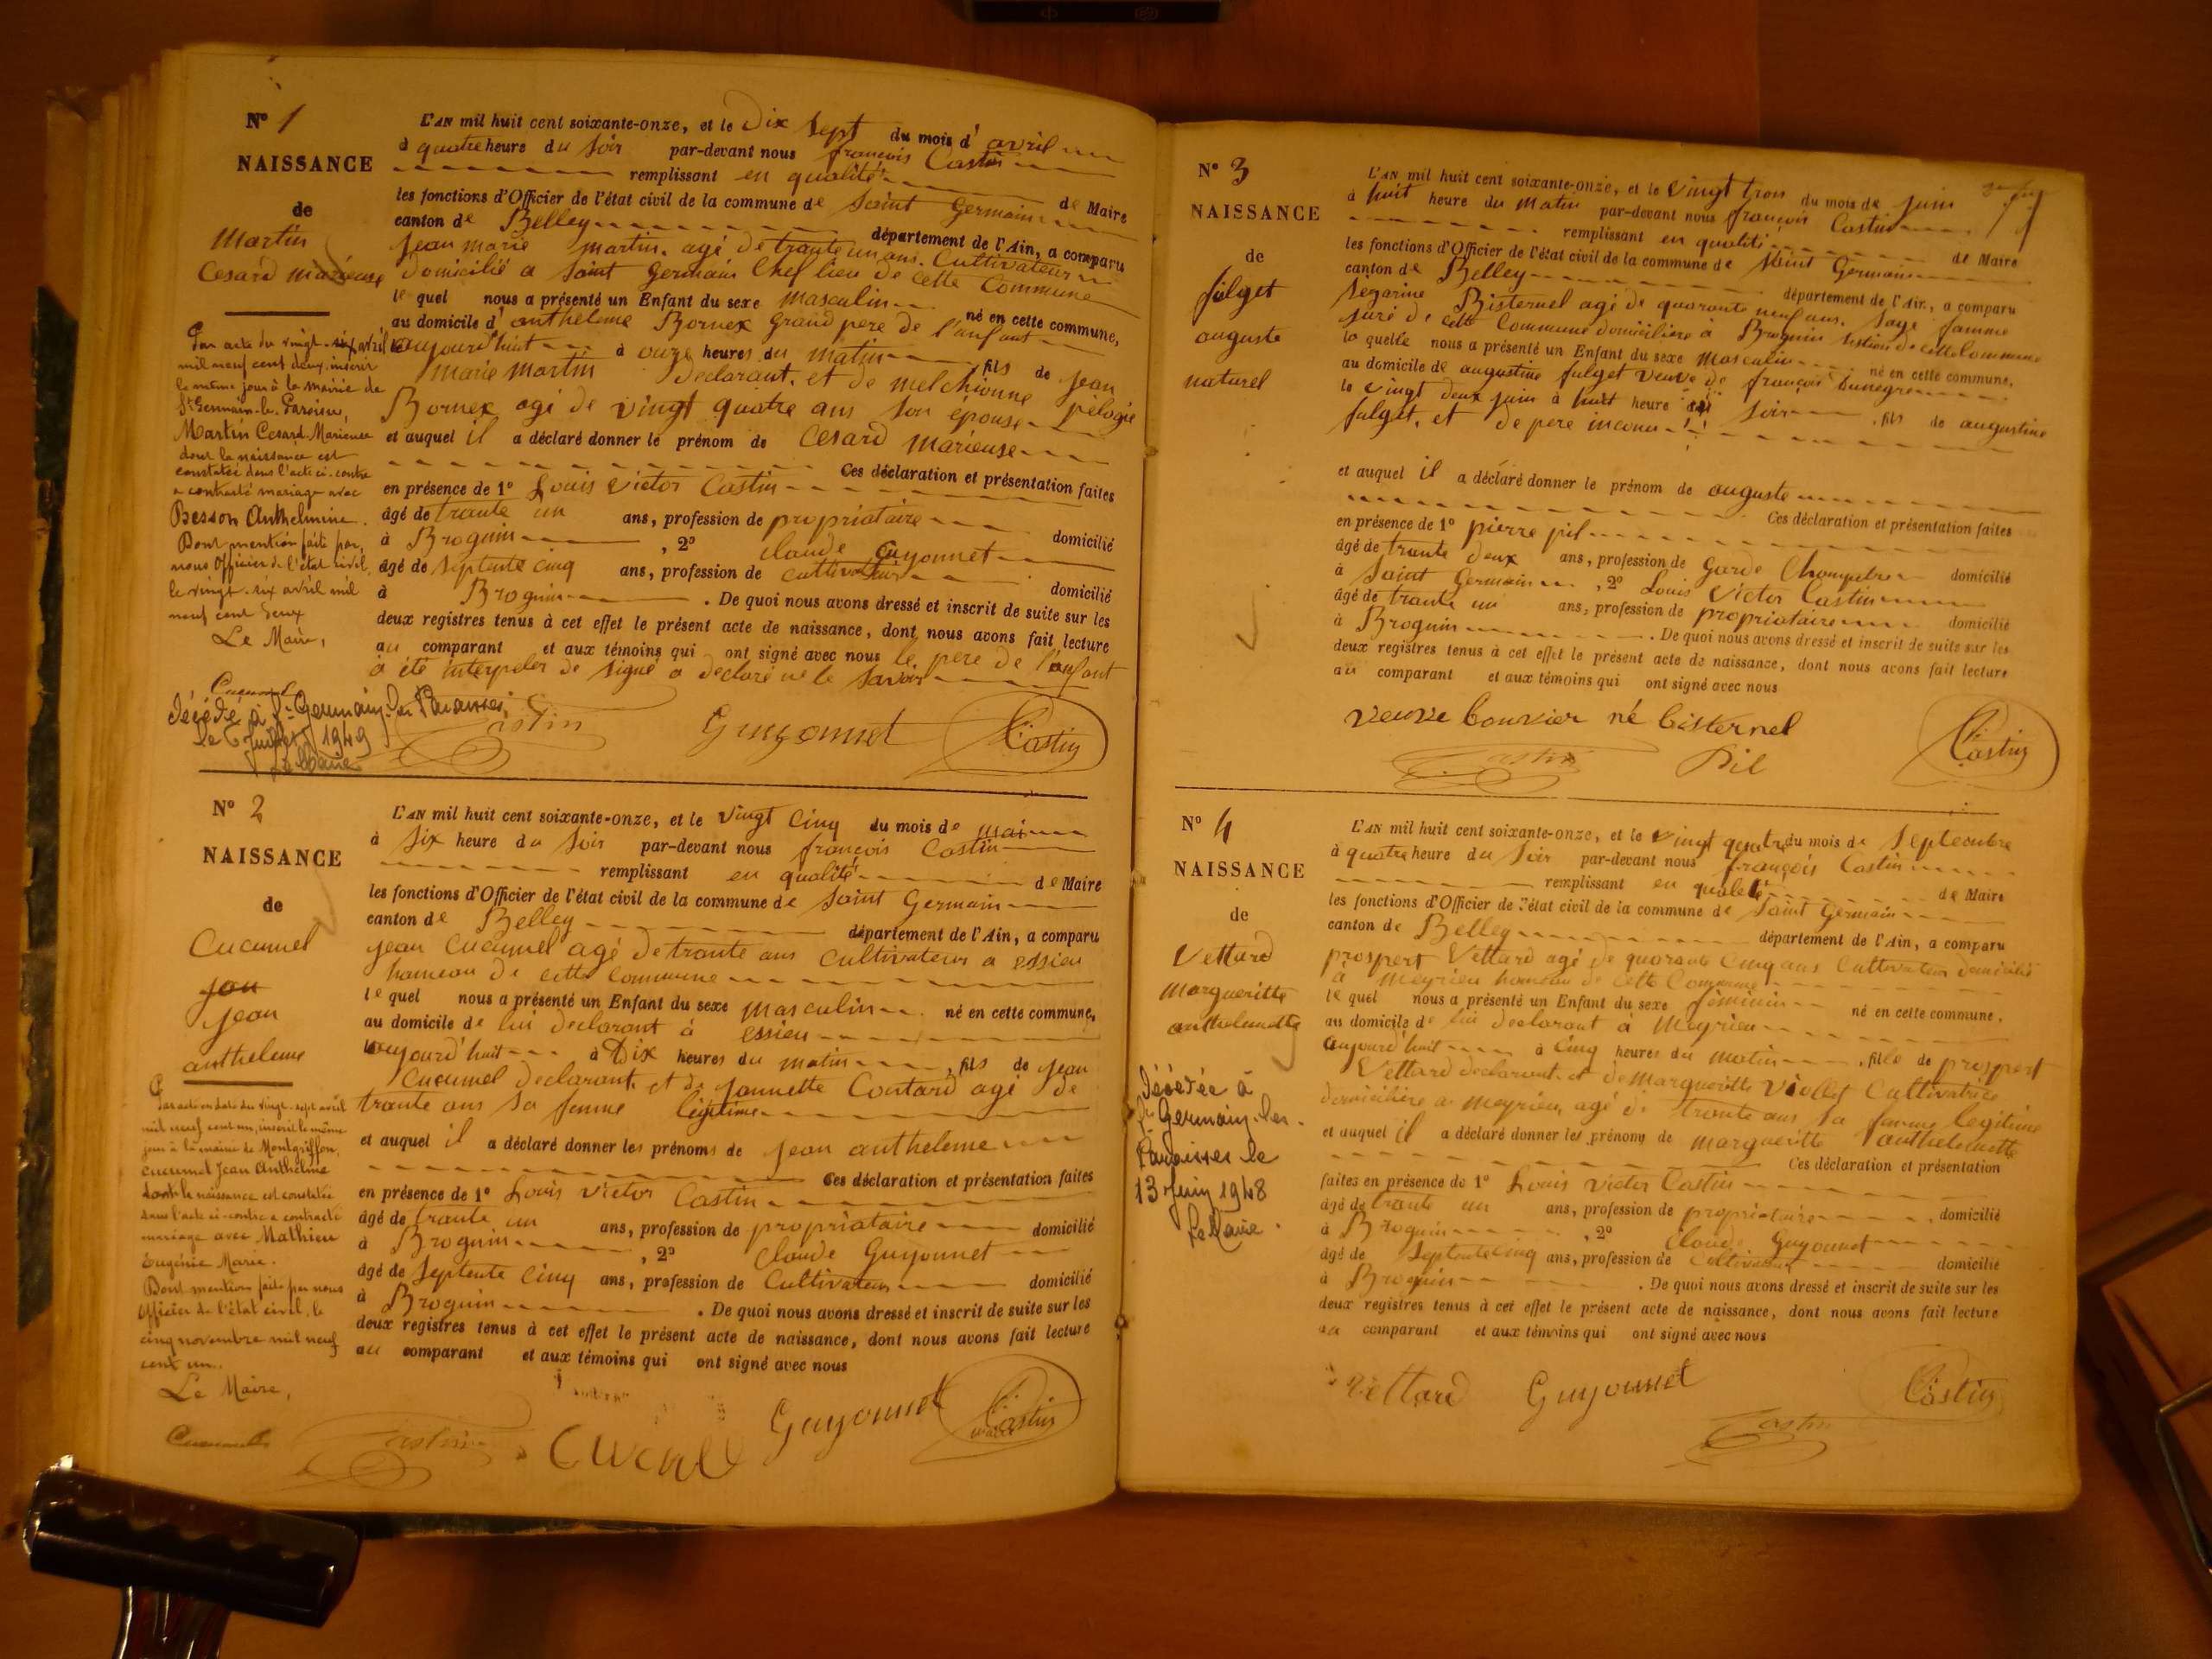 N° 1
NAISSANCE
de
Martin
Cesard marieuse
Par acte du vingt-six avril
mil neuf cent deux, inscrit
le même jour à la mairie de
St Germain-les-Paroisses,
Martin Cesard Marieuse
dont la naissance est
constatée dans l'acte ci-contre
a contracté mariage avec
Besson Anthelmine.
Dont mention faite par
nous Officier de l'état civil,
le vingt-six avril mil
neuf cent deux
Le Maire,
décédé à St Germain-les-Paroisses,
le 6 Juillet 1949
Le Maire
L'AN mil huit cent soixante-onze, et le Dix sept du mois d' avril
à quatre heure du soir par-devant nous françois Castin
remplissant en qualité de Maire
les fonctions d'Officier de l'état civil de la commune de Saint Germain
canton de Belley département de l'Ain, a comparu
jean marie martin. agé de trante un ans. Cultivateur
domicilié a Saint Germain Chef lieu de cette Commune
le quel nous a présenté un Enfant du sexe masculin né en cette commune,
au domicile d' antheleme Bornex Grand pere de l'anfant
aujourd'huit à onze heures du matin fils de jean
marie martin Declarant. et de melchionne pélogie
Bornex agé de vingt quatre ans son épouse
et auquel il a déclaré donner le prénom de Cesard marieuse
Ces déclaration et présentation faites
en présence de 1° Louis victor Castin
âgé de trante un ans, profession de propriataire domicilié
à Brognin , 2° Claude Guyonnet
âgé de septente cinq ans, profession de cultivateur domicilié
à Brognin . De quoi nous avons dressé et inscrit de suite sur les
deux registres tenus à cet effet le présent acte de naissance, dont nous avons fait lecture
au comparant et aux témoins qui ont signé avec nous le pere de l'anfant
a été interpeler de signé a declaré ne le savoir
Castin Guyonnet Castin
N° 2
NAISSANCE
de
Cucumel
jean
antheleme
Par acte en date du vingt-sept avril
mil neuf cent un, inscrit le même
jour à la mairie de Montgriffon,
Cucumel Jean Anthelme
dont la naissance est constatée
dans l'acte ci-contre a contracté
mariage avec Mathieu
Eugénie Marie.
Dont mention faite par nous
Officier de l'état civil, le
cinq novembre mil neuf
cent un.
Le Maire,
L'AN mil huit cent soixante-onze, et le vingt Cinq du mois de mai
à six heure du soir par-devant nous françois Castin
remplissant en qualité de Maire
les fonctions d'Officier de l'état civil de la commune de Saint Germain
canton de Belley département de l'Ain, a comparu
jean Cucumel agé de trante ans Cultivateur a essieu
hameau de cette commune
le quel nous a présenté un Enfant du sexe masculin né en cette commune,
au domicile de lui declarant à essieu
aujourd'huit à Dix heures du matin , fils de jean
Cucumel declarant. et de jannette Contard agé de
trante ans sa femme légitime
et auquel il a déclaré donner les prénoms de jean antheleme
Ces déclaration et présentation faites
en présence de 1° Louis victor Castin
âgé de trante un ans, profession de propriataire domicilié
à Brognin , 2° Claude Guyonnet
âgé de septente Cinq ans, profession de Cultivateur domicilié
à Brognin . De quoi nous avons dressé et inscrit de suite sur les
deux registres tenus à cet effet le présent acte de naissance, dont nous avons fait lecture
au comparant et aux témoins qui ont signé avec nous
Castin Guyonnet Castin
N° 3
NAISSANCE
de
fulget
auguste
naturel
L'AN mil huit cent soixante-onze, et le vingt trois du mois de juin
à huit heure du matin par-devant nous françois Castin
remplissant en qualité de Maire
les fonctions d'Officier de l'état civil de la commune de Saint Germain
canton de Belley département de l'Ain, a comparu
Bisternel agé de quarante neuf ans. Sage famme
juré de cette Commune domiciliere à Brognin section de cette Commune
la quelle nous a présenté un Enfant du sexe masculin né en cette commune,
au domicile de augustine fulget veuve de françois
le vingt deux juin à huit heure du soir , fils de augustine
fulget, et de pere inconu
et auquel il a déclaré donner le prénom de auguste
Ces déclaration et présentation faites
en présence de 1° pierre pil
âgé de trante deux ans, profession de Garde Champetre domicilié
à Saint Germain , 2° Louis Victor Castin
âgé de trante un ans, profession de propriataire domicilié
à Brognin . De quoi nous avons dressé et inscrit de suite sur les
deux registres tenus à cet effet le présent acte de naissance, dont nous avons fait lecture
au comparant et aux témoins qui ont signé avec nous
veuve bouvier né bisternel
Castin Pil Castin
N° 4
NAISSANCE
de
Vettard
margueritte
anthelemette
décédée à
St Germain-les-
Paroisses le
13 Juin 1948
Le Maire.
L'AN mil huit cent soixante-onze, et le vingt quatre du mois de Septembre
à quatre heure du soir par-devant nous françois Castin
remplissant en qualité de Maire
les fonctions d'Officier de l'état civil de la commune de Saint Germain
canton de Belley département de l'Ain, a comparu
prospert Vettard agé de quarante Cinq ans Cultivateur domicilié
à meyrieu hameau de cette Commune
le quel nous a présenté un Enfant du sexe féminin né en cette commune,
au domicile de lui declarant à Meyrieu
aujourd'huit à Cinq heures du matin , fille de prospert
Vettard declarant. et de Margueritte Viollet Cultivatrice
domiciliére a meyrieu, agé de trante ans sa famme legitime
et auquel il a déclaré donner les prénoms de margueritte anthelemette
Ces déclaration et présentation
faites en présence de 1° Louis victor Castin
âgé de trante un ans, profession de propriataire , domicilié
à Brognin , 2° Claude Guyonnet
âgé de septente Cinq ans, profession de Cultivateur domicilié
à Brognin . De quoi nous avons dressé et inscrit de suite sur les
deux registres tenus à cet effet le présent acte de naissance, dont nous avons fait lecture
au comparant et aux témoins qui ont signé avec nous
Vettard Guyonnet Castin
Castin